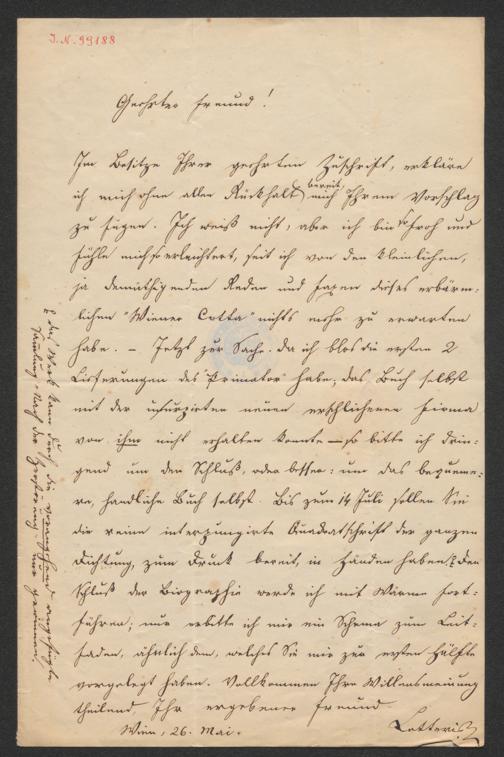 J.N. 99188
Geehrter Freund!
Im Besitze Ihrer geehrten Zuschrift, erkläre
ich mich ohne allen Rückhalt bereit mich Ihrem Vorschlag
zu fügen. Ich weiß nicht, aber ich bin so froh und
fühle mich so erleichtert, seit ich von den kleinlichen,
ja demüthigenden Reden und Faxen dieses erbärm-
lichen "Wiener Cotta" nichts mehr zu erwarten
habe. – Jetzt zur Sache. Da ich blos die ersten 2
Lieferungen des "Primator" habe, das Buch selbst
mit der usurpirten neuen erschlichenen Firma
von ihm nicht erhalten konnte – so bitte ich drin-
gend um den Schluß, oder besser: um das bequeme-
re, handliche Buch selbst. Bis zum 14 Juli sollen Sie
die reine interpungirte Quadratschrift der ganzen
Dichtung, zum Druck bereit, in Händen haben. Den
Schluß der Biographie werde ich mit Wärme fort-
führen; nur erbitte ich mir ein Schema zum Leit-
faden, ähnlich dem, welches Sie mir zur ersten Hälfte
vorgelegt haben. Vollkommen Ihre Willensmeinung
theilend Ihr ergebener Freund
Wien, 26. Mai. Letteris
das Werk kann durch die
nach der nur gewinnen.